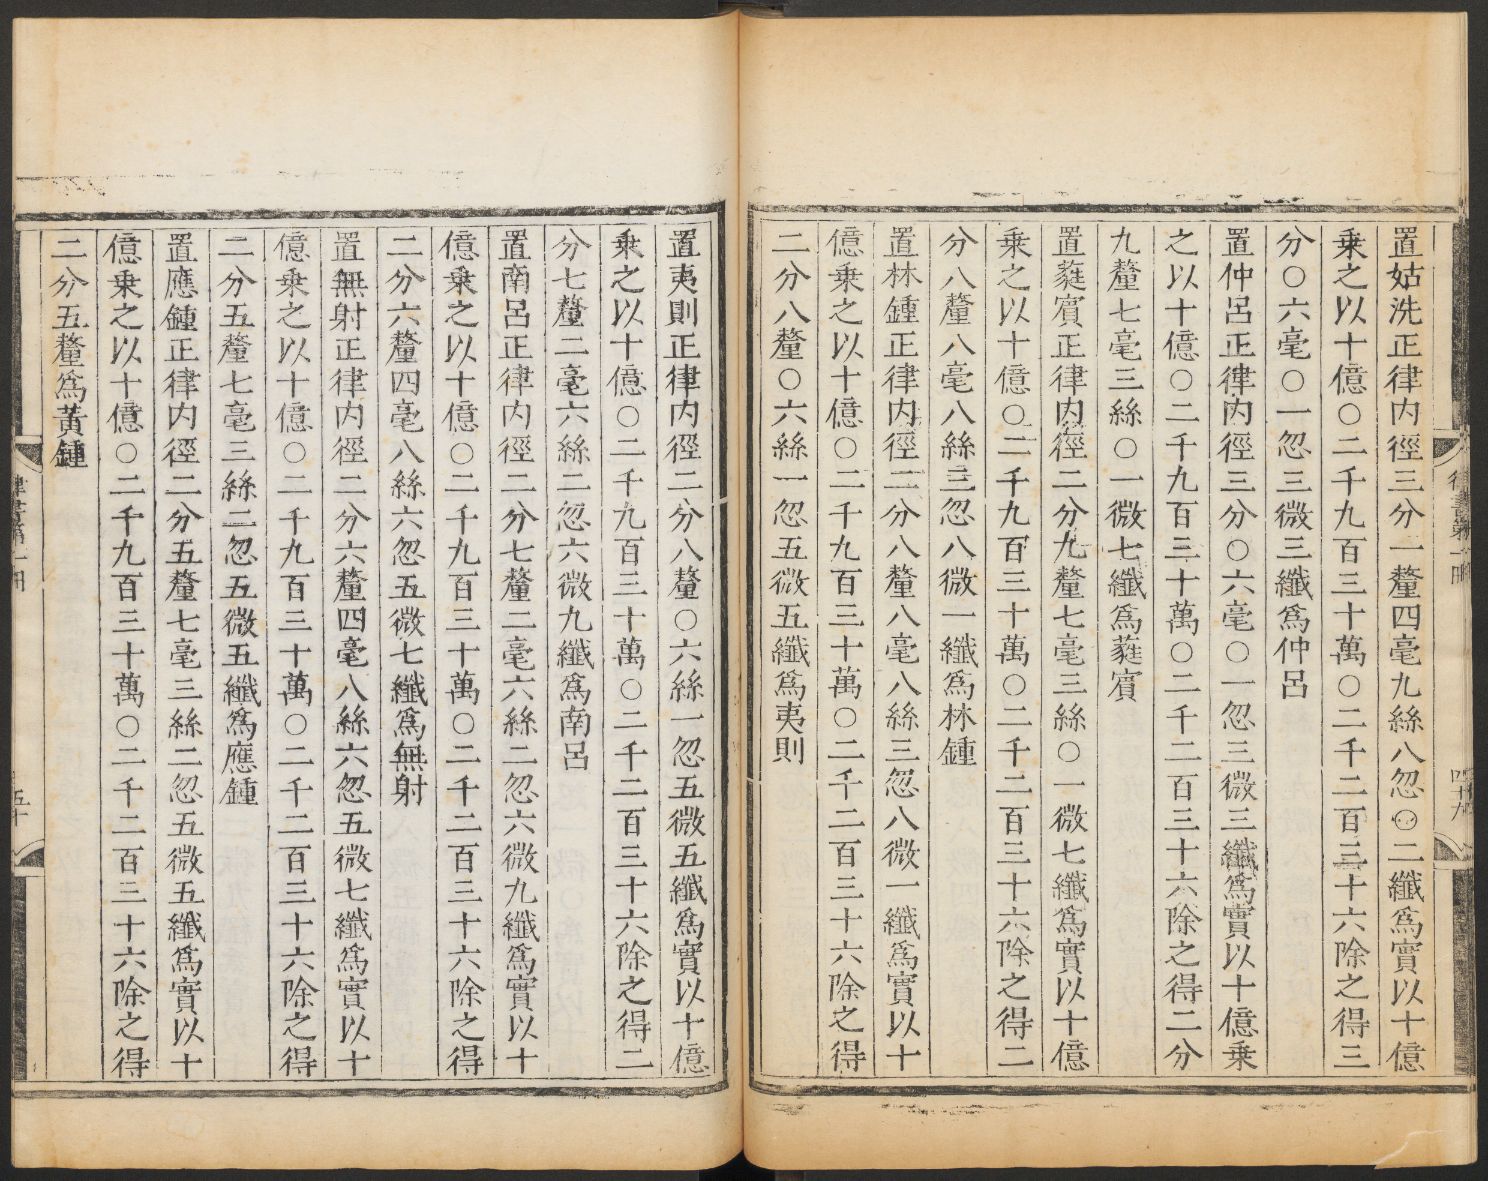 置姑洗正律內徑三分一釐四毫九絲八忽〇二纖爲實以十億
乗之以十億〇二千九百三十萬〇二千二百三十六除之得三
分〇六毫〇一忽三微三纖爲仲呂
置仲呂正律內徑三分〇六毫〇一忽三微三纖爲實以十億乗
之以十億〇二千九百三十萬〇二千二百三十六除之得二分
九釐七毫三絲〇一微七纖爲蕤賓
置蕤賓正律內徑二分九釐七毫三絲〇一微七纖爲實以十億
乗之以十億〇二千九百三十萬〇二千二百三十六除之得二
分八釐八毫八絲三忽八微一纖爲林鍾
置林鍾正律內徑二分八釐八毫八絲三忽八微一纖爲實以十
億乗之以十億〇二千九百三十萬〇二千二百三十六除之得
二分八釐〇六絲一忽五微五纖爲夷則
律書第一冊
四十九
置夷則正律內徑二分八釐〇六絲一忽五微五纖爲實以十億
乗之以十億〇二千九百三十萬〇二千二百三十六除之得二
分七釐二毫六絲二忽六微九纖爲南呂
置南呂正律內徑二分七釐二毫六絲二忽六微九纖爲實以十
億乗之以十億〇二千九百三十萬〇二千二百三十六除之得
二分六釐四毫八絲六忽五微七纖爲無射
置無射正律內徑二分六釐四毫八絲六忽五微七纖爲實以十
億乗之以十億〇二千九百三十萬〇二千二百三十六除之得
二分五釐七毫三絲二忽五微五纖爲應鍾
置應鍾正律內徑二分五釐七毫三絲二忽五微五纖爲實以十
億乗之以十億〇二千九百三十萬〇二千二百三十六除之得
二分五釐爲黃鍾
律書第一冊
五十